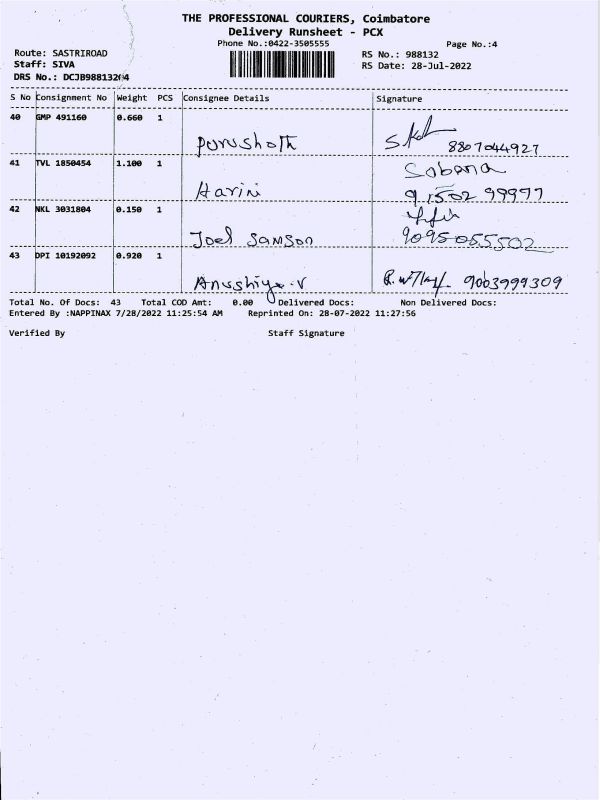 THE PROFESSIONAL COURIERS, Coimbatore
Delivery Runsheet - PCX
Phone No.:0422-3505555 Page No.:4
Route: SASTRIROAD RS No.: 988132
Staff: SIVA RS Date: 28-Jul-2022
DRS No.: DCJB988132044
S No Consignment No Weight PCS Consignee Details Signature
40 GMP 491160 0.660 1
Purushoth 8807044927
41 TVL 1850454 1.100 1 Sobana
Harini 91502 99977
42 NKL 3031804 0.150 1
Joel Samson 9095055502
43 DPI 10192092 0.920 1
Anushiya.V 9003999309
Total No. Of Docs: 43 Total COD Amt: 0.00 Delivered Docs: Non Delivered Docs:
Entered By :NAPPINAX 7/28/2022 11:25:54 AM Reprinted On: 28-07-2022 11:27:56
Verified By Staff Signature